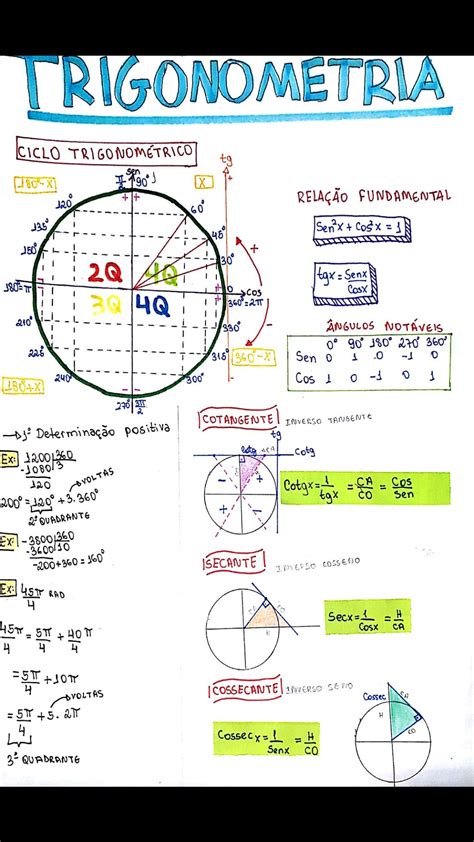 TRIGONOMETRIA
CICLO TRIGONOMÉTRICO
sen
tg
180°-X
π/2 90°
X
120°
60°
135°
45°
150°
30°
2Q 4Q
180°=π
0
cos
360°=2π
3Q 4Q
210°
330°
225°
315°
240°
300°
180°+X
360°-X
270° 3π/2
RELAÇÃO FUNDAMENTAL
Sen²X + Cos²X = 1
tgx = Senx/Cosx
ÂNGULOS NOTÁVEIS
0° 90° 180° 270° 360°
Sen 0 1 0 -1 0
Cos 1 0 -1 0 1
→ 1ª Determinação positiva
Ex: 1200 360
-1080 3
120
VOLTAS
200° = 120° + 3.360°
2º QUADRANTE
Ex: -3800 360
-3600 10
-200+360 = 160°
Ex: 45π/4 RAD
45π/4 = 5π/4 + 40π/4
= 5π/4 + 10π
VOLTAS
= 5π/4 + 5.2π
3º QUADRANTE
COTANGENTE INVERSO TANGENTE
tg
Cotg
Cotg
- +
+ -
Cotgx = 1/tgx = CA/CO = Cos/Sen
SECANTE INVERSO COSSENO
CO
CA
H
Secx = 1/Cosx = H/CA
COSSECANTE INVERSO SENO
Cossec
CA
H
CO
Cossecx = 1/Senx = H/CO